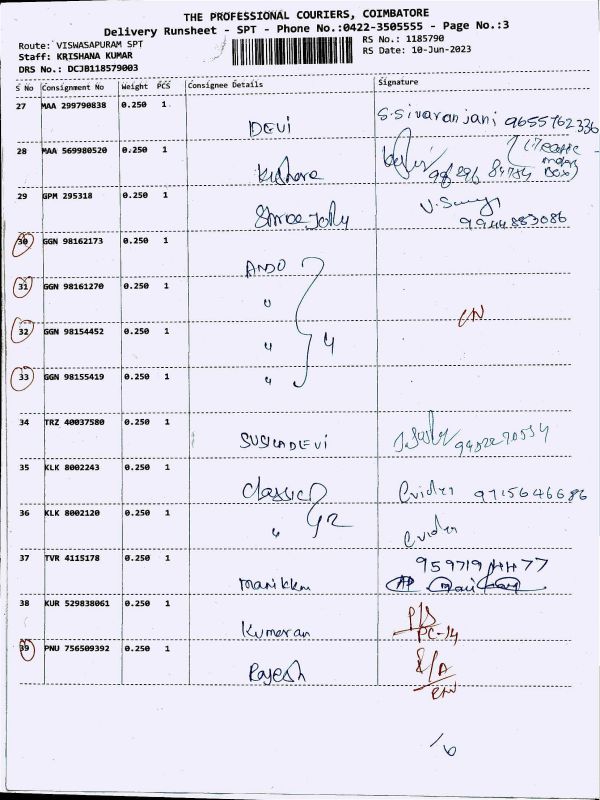 THE PROFESSIONAL COURIERS, COIMBATORE
Delivery Runsheet - SPT - Phone No.:0422-3505555 - Page No.:3
Route: VISWASAPURAM SPT
RS No.: 1185790
Staff: KRISHANA KUMAR
RS Date: 10-Jun-2023
DRS No.: DCJB118579003
S No Consignment No Weight PCS Consignee Details Signature
27 MAA 299790838 0.250 1
DEVI S.Sivaranjani 9655762336
28 MAA 569980520 0.250 1
Kishore
29 GPM 295318 0.250 1
Shree Jolly 9944883086
30 GGN 98162173 0.250 1
ANDO
31 GGN 98161270 0.250 1
"
32 GGN 98154452 0.250 1
" 4
33 GGN 98155419 0.250 1
"
34 TRZ 40037580 0.250 1
SUSILADEVI
35 KLK 8002243 0.250 1
Classic 9715646686
36 KLK 8002120 0.250 1
" 2
37 TVR 4115178 0.250 1
Manikkm
38 KUR 529838061 0.250 1
Kumaran PC-14
39 PNU 756509392 0.250 1
Rajesh